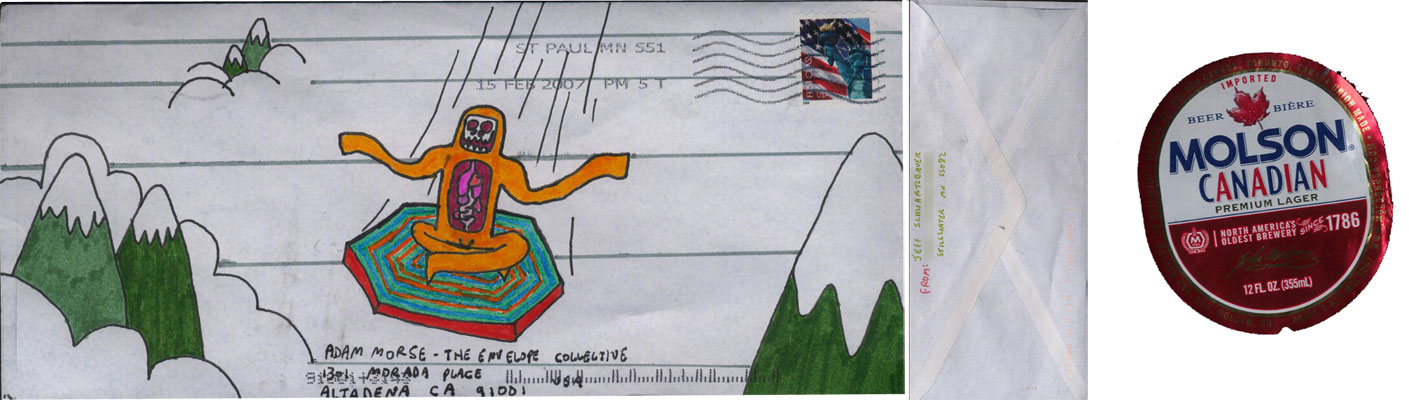 ST PAUL MN 551
15 FEB 2007 PM 5 T
USA
ADAM MORSE - THE ENVELOPE COLLECTIVE
1301 MORADA PLACE
USA
ALTADENA CA 91001
FROM: JEFF SCHWARTZBAUER
STILLWATER MN 55082
IMPORTED
BEER BIÈRE
MOLSON®
CANADIAN
PREMIUM LAGER
NORTH AMERICA'S
OLDEST BREWERY SINCE 1786
12 FL. OZ. (355mL)
UNION MADE